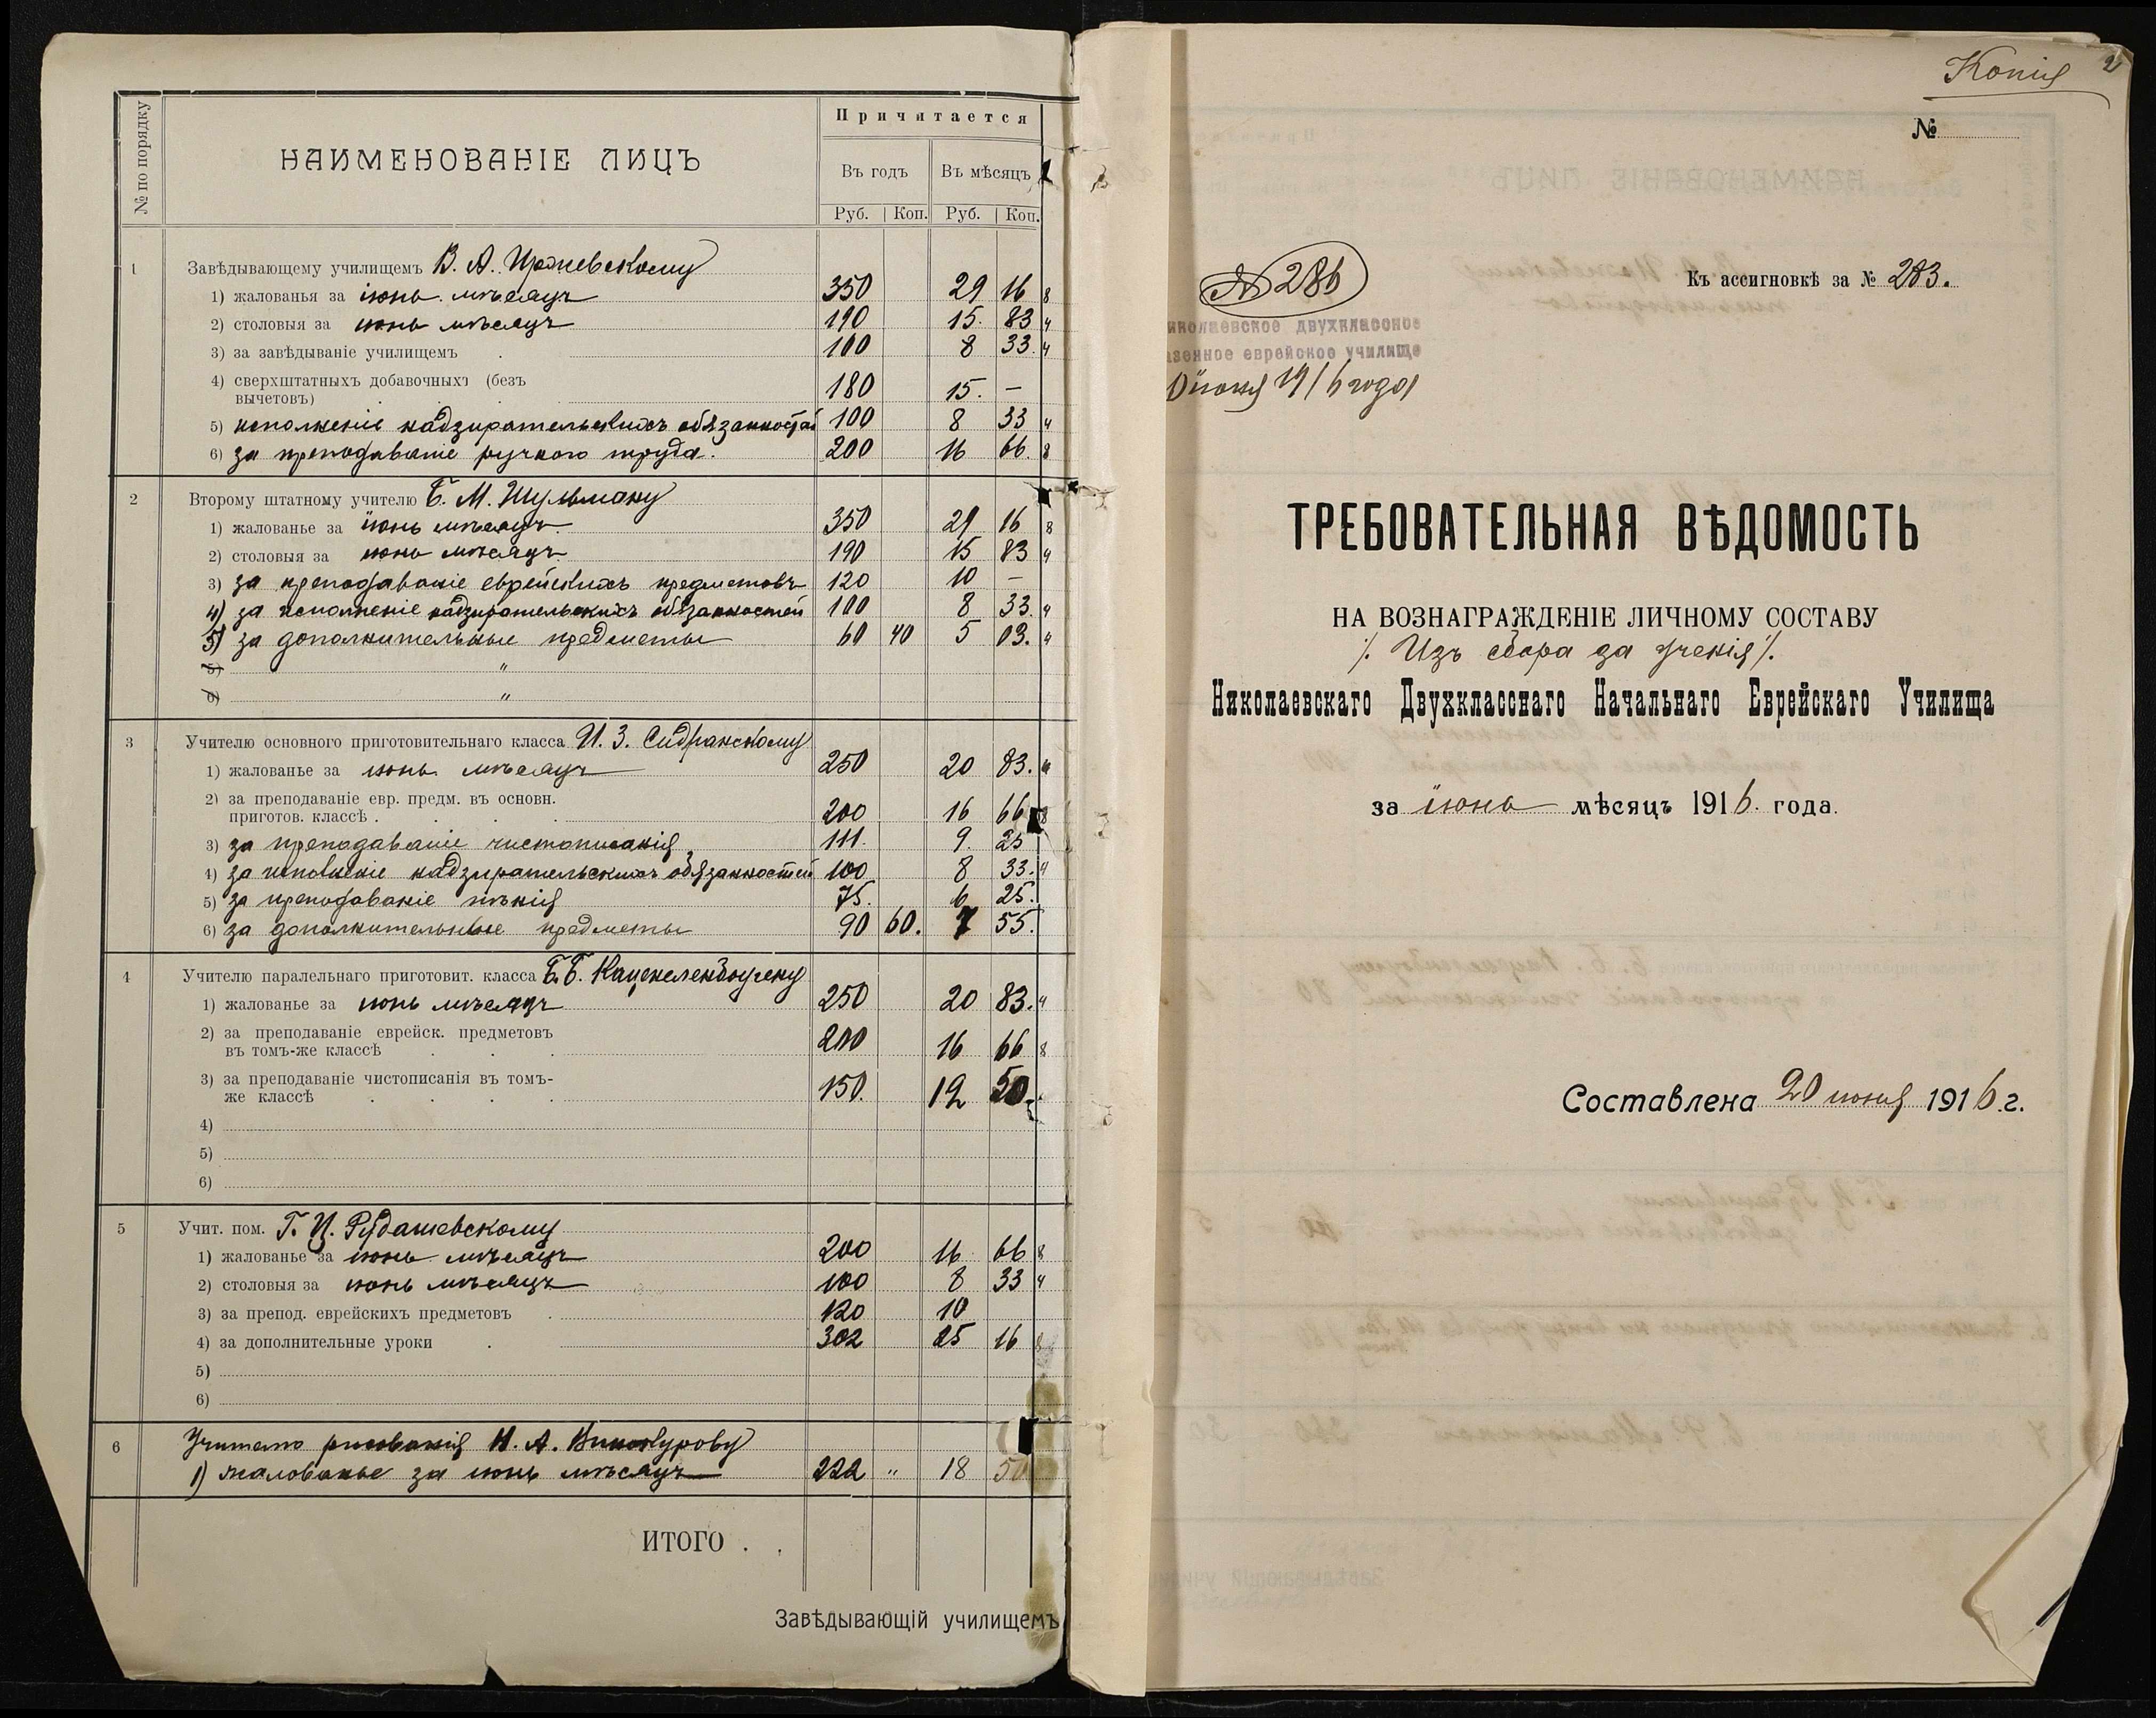 № по порядку
НАИМЕНОВАНІЕ ЛИЦЪ
Причитается
Въ годъ Въ мѣсяцъ
Руб. Коп. Руб. Коп.
1 Завѣдывающему училищемъ В. А.
1) жалованья за іюнь мѣсяцъ 350 29 16 8
2) столовыя за іюнь мѣсяцъ 190 15. 83 4
3) за завѣдываніе училищемъ 100 8 33. 4
4) сверхштатныхъ добавочныхъ (безъ
вычетовъ) 180 15. —
5) исполненіе надзирательскихъ обязанностей 100 8 33 4
6) за преподаваніе ручного труда. 200 16 66. 8
2 Второму штатному учителю Б. М. Шульману
1) жалованье за іюнь мѣсяцъ. 350 29 16 8
2) столовыя за іюнь мѣсяцъ 190 15 83 4
3) за преподаваніе еврейскихъ предметовъ 120 10 —
4) за исполненіе надзирательскихъ обязанностей 100 8 33. 4
5) за дополнительные предметы 60 40 5 03. 4
5) "
6) "
3 Учителю основного приготовительнаго класса И. З. Сидранскому
1) жалованье за іюнь мѣсяцъ 250 20 83. 4
2) за преподаваніе евр. предм. въ основн.
приготов. классѣ . 200 16 66 8
3) за преподаваніе чистописанія 111. 9. 25
4) за исполненіе надзирательскихъ обязанностей 100 8 33. 4
5) за преподаваніе пѣнія 75. 6 25.
6) за дополнительные предметы 90 60. 7 55.
4 Учителю паралельнаго приготовит. класса Б. Б. Каценеленбогену
1) жалованье за іюнь мѣсяцъ 250 20 83. 4
2) за преподаваніе еврейск. предметовъ
въ томъ-же классѣ 200 16 66 8
3) за преподаваніе чистописанія въ томъ-
же классѣ 150. 12 50.
4)
5)
6)
5 Учит. пом. Г. И. Рудашевскому
1) жалованье за іюнь мѣсяцъ 200 16 66 8
2) столовыя за іюнь мѣсяцъ 100 8 33 4
3) за препод. еврейскихъ предметовъ 120 10
4) за дополнительные уроки 302 25 16 8
5)
6)
6 Учителю рисованія Н. А. Винокурову
1) жалованье за іюнь мѣсяцъ 222 " 18 50
ИТОГО . .
Завѣдывающій училищемъ
Копія 2
№
№ 286
Къ ассигновкѣ за № 283.
иколаевское двухклассное
азенное еврейское училище
0 іюня 1916 года
ТРЕБОВАТЕЛЬНАЯ ВѢДОМОСТЬ
НА ВОЗНАГРАЖДЕНІЕ ЛИЧНОМУ СОСТАВУ
/. Изъ сбора за ученія /.
Николаевскаго Двухкласснаго Начальнаго Еврейскаго Училища
за іюнь мѣсяцъ 1916. года.
Составлена 20 іюня 1916 г.